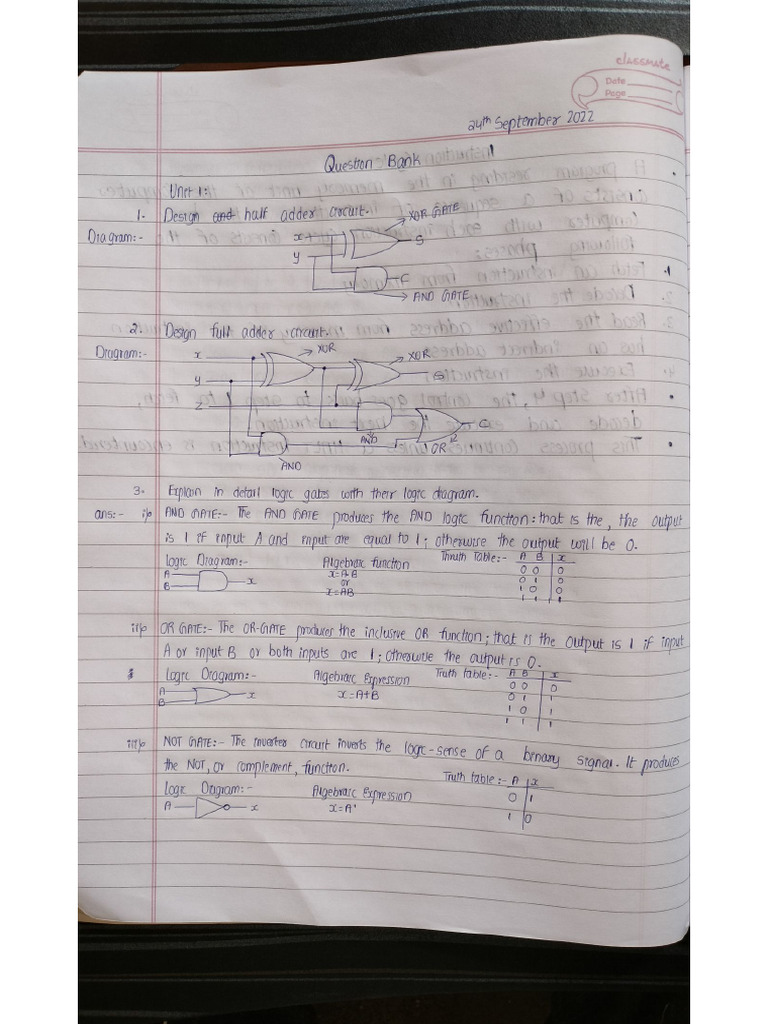 classmate
Date
Page
24th September 2022
Question Bank
Unit 1:
1. Design and half adder circuit.
Diagram:-
XOR GATE
x
S
y
C
AND GATE
2. Design full adder circuit.
Diagram:-
x
XOR
XOR
y
S
z
C
AND
OR
AND
3. Explain in detail logic gates with their logic diagram.
ans:- i) AND GATE:- The AND GATE produces the AND logic function: that is the, the output
is 1 if input A and input are equal to 1; otherwise the output will be 0.
Logic Diagram:- Algebraic function Thruth Table:- A B x
A x=A·B 0 0 0
x or 0 1 0
B x=AB 1 0 0
1 1 1
ii) OR GATE:- The OR-GATE produces the inclusive OR function; that is the output is 1 if input
A or input B or both inputs are 1; otherwise the output is 0.
Logic Diagram:- Algebraic Expression Truth table:- A B x
A 0 0 0
x x=A+B 0 1 1
B 1 0 1
1 1 1
iii) NOT GATE:- The inverter circuit inverts the logic-sense of a binary signal. It produces
the NOT, or complement, function.
Logic Diagram:- Algebraic Expression Truth table:- A x
A x x=A' 0 1
1 0